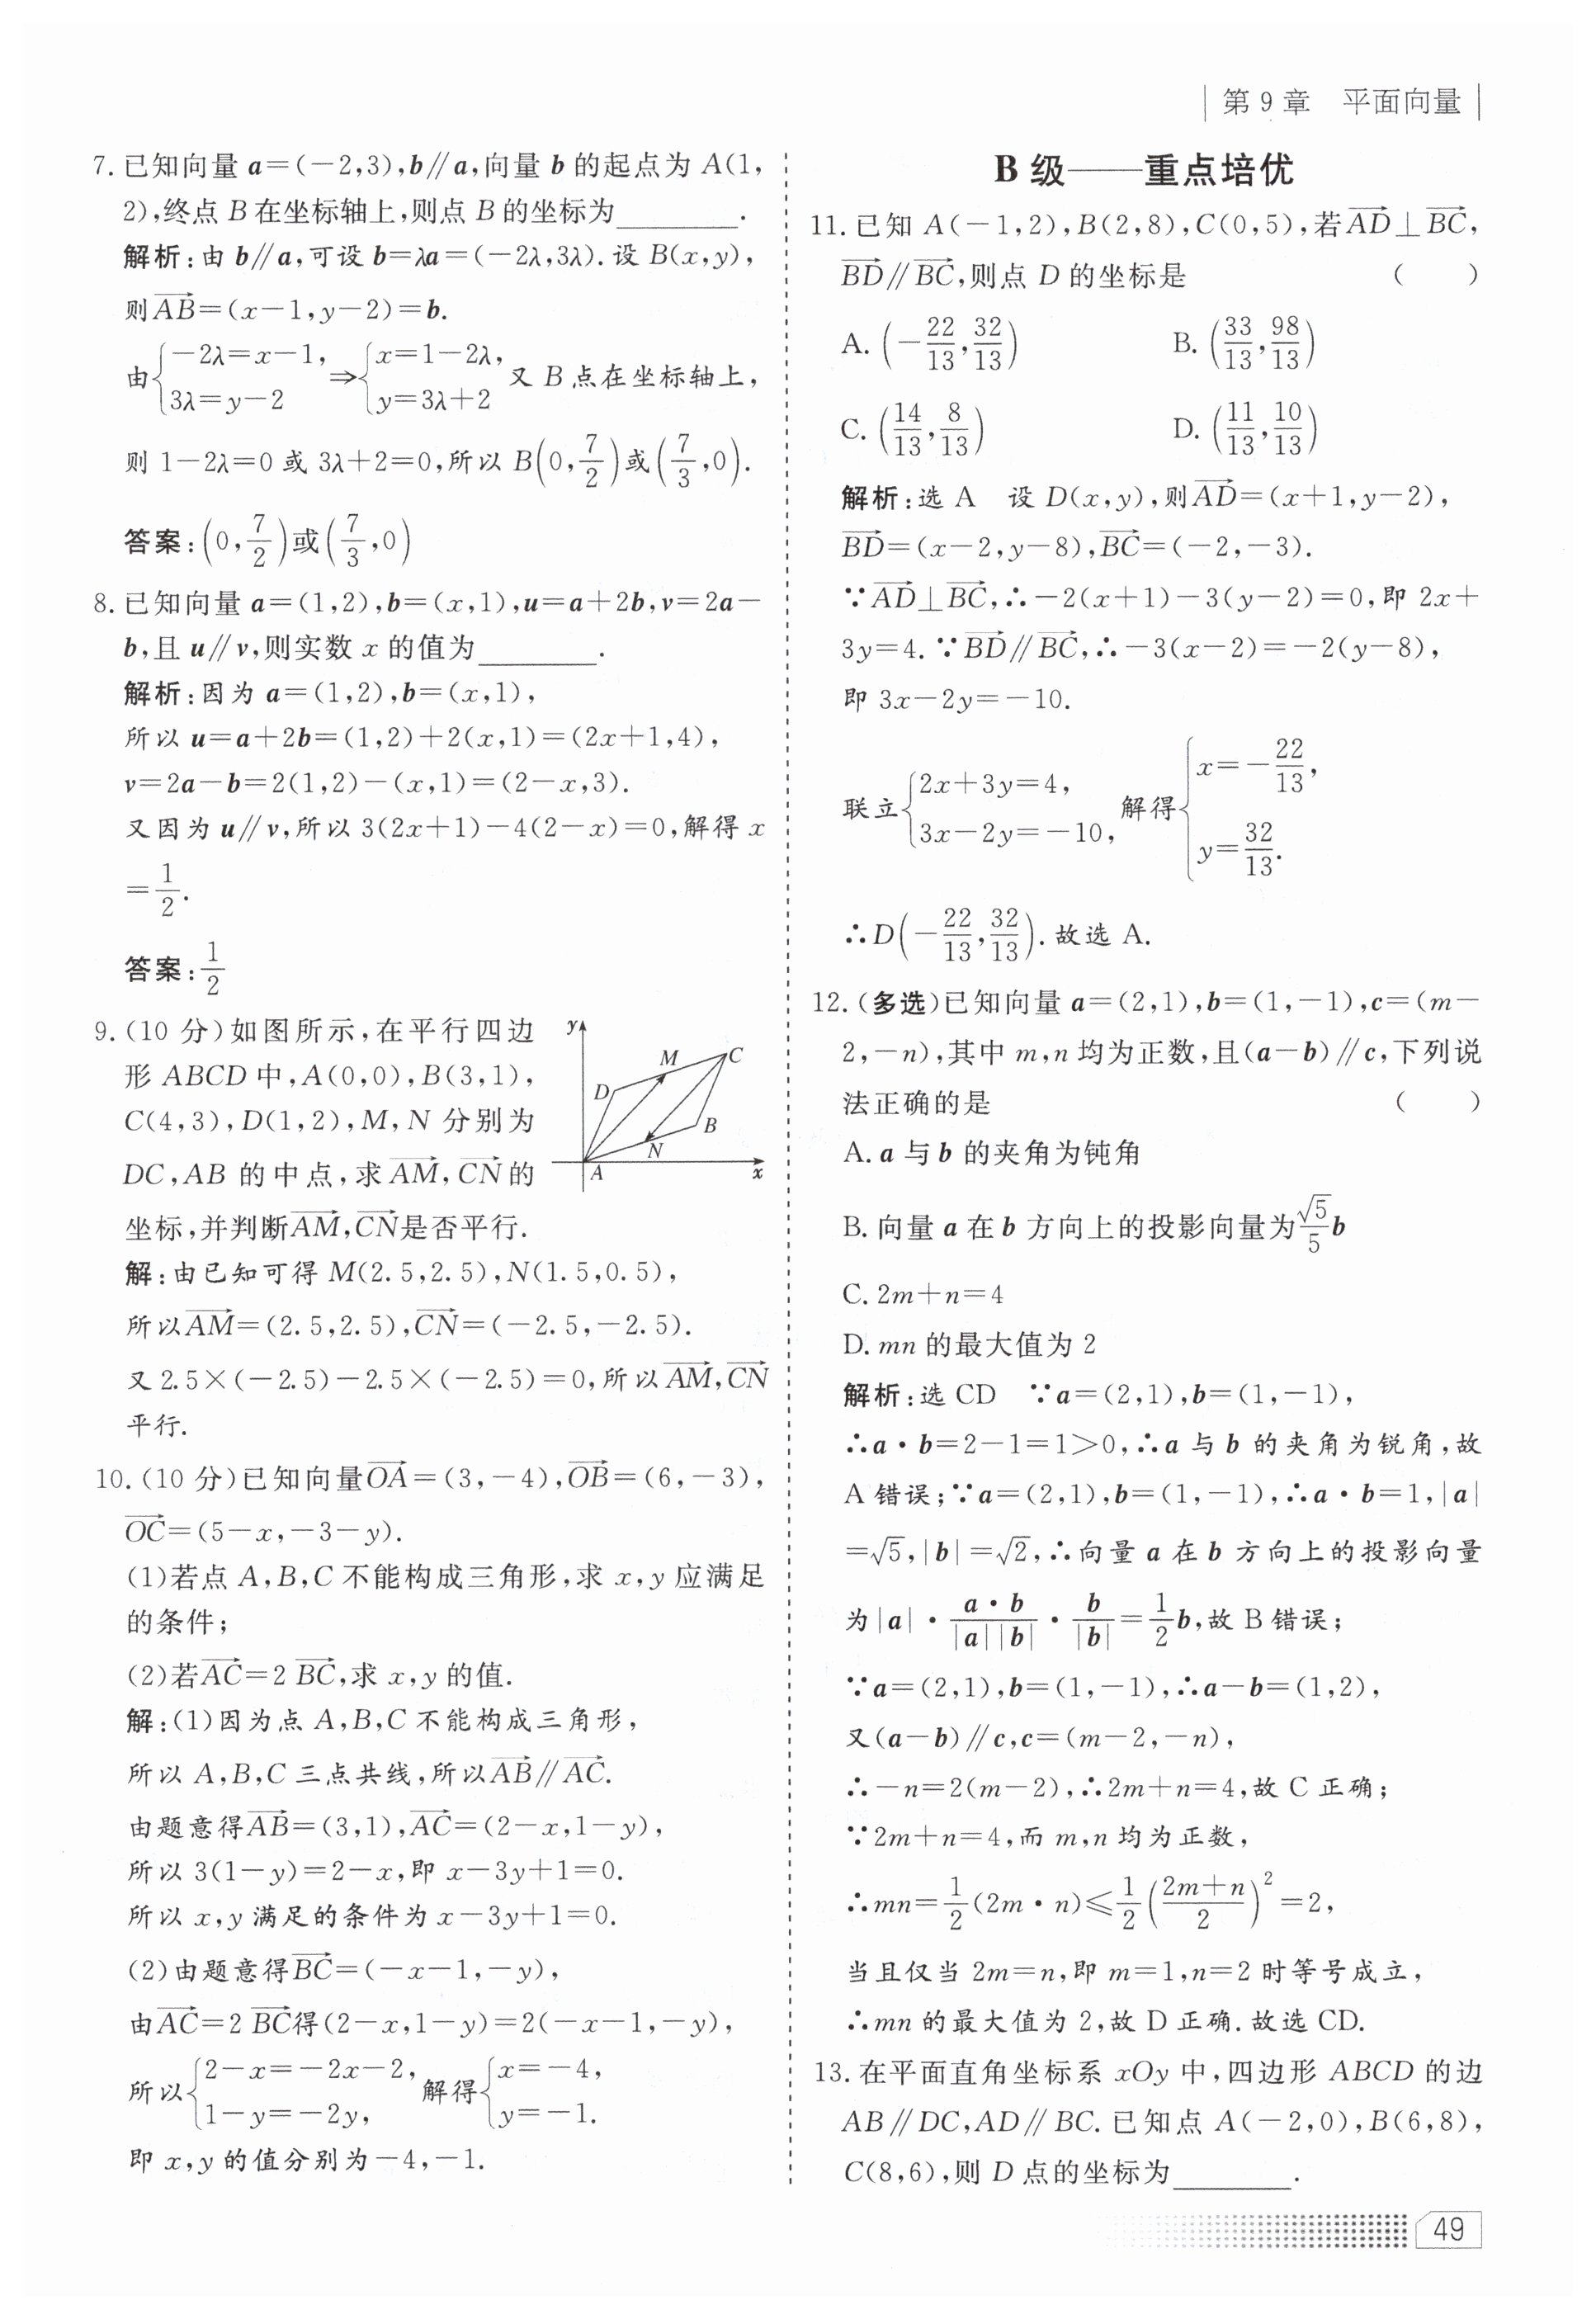 第 9 章　平面向量
7. 已知向量 a=(−2,3),b∥a,向量 b 的起点为 A(1,
2),终点 B 在坐标轴上,则点 B 的坐标为________.
解析:由 b∥a,可设 b=λa=(−2λ,3λ).设 B(x,y),
则AB→=(x−1,y−2)=b.
由{−2λ=x−1, 3λ=y−2 ⇒{x=1−2λ, y=3λ+2 又 B 点在坐标轴上,
则 1−2λ=0 或 3λ+2=0,所以 B(0,7/2)或(7/3,0).
答案:(0,7/2)或(7/3,0)
8. 已知向量 a=(1,2),b=(x,1),u=a+2b,v=2a−
b,且 u∥v,则实数 x 的值为________.
解析:因为 a=(1,2),b=(x,1),
所以 u=a+2b=(1,2)+2(x,1)=(2x+1,4),
v=2a−b=2(1,2)−(x,1)=(2−x,3).
又因为 u∥v,所以 3(2x+1)−4(2−x)=0,解得 x
=1/2.
答案:1/2
9. (10 分)如图所示,在平行四边
形 ABCD 中,A(0,0),B(3,1),
C(4,3),D(1,2),M,N 分别为
DC,AB 的中点,求AM→,CN→的
坐标,并判断AM→,CN→是否平行.
y
M
C
D
B
N
A
x
解:由已知可得 M(2.5,2.5),N(1.5,0.5),
所以AM→=(2.5,2.5),CN→=(−2.5,−2.5).
又 2.5×(−2.5)−2.5×(−2.5)=0,所以AM→,CN→
平行.
10. (10 分)已知向量OA→=(3,−4),OB→=(6,−3),
OC→=(5−x,−3−y).
(1)若点 A,B,C 不能构成三角形,求 x,y 应满足
的条件;
(2)若AC→=2 BC→,求 x,y 的值.
解:(1)因为点 A,B,C 不能构成三角形,
所以 A,B,C 三点共线,所以AB→∥AC→.
由题意得AB→=(3,1),AC→=(2−x,1−y),
所以 3(1−y)=2−x,即 x−3y+1=0.
所以 x,y 满足的条件为 x−3y+1=0.
(2)由题意得BC→=(−x−1,−y),
由AC→=2 BC→得(2−x,1−y)=2(−x−1,−y),
所以{2−x=−2x−2, 1−y=−2y, 解得{x=−4, y=−1.
即 x,y 的值分别为−4,−1.
B 级——重点培优
11. 已知 A(−1,2),B(2,8),C(0,5),若AD→⊥BC→,
BD→∥BC→,则点 D 的坐标是 (　　)
A. (−22/13,32/13)　　B. (33/13,98/13)
C. (14/13,8/13)　　D. (11/13,10/13)
解析:选 A　设 D(x,y),则AD→=(x+1,y−2),
BD→=(x−2,y−8),BC→=(−2,−3).
∵AD→⊥BC→,∴−2(x+1)−3(y−2)=0,即 2x+
3y=4.∵BD→∥BC→,∴−3(x−2)=−2(y−8),
即 3x−2y=−10.
联立{2x+3y=4, 3x−2y=−10, 解得{x=−22/13, y=32/13.
∴D(−22/13,32/13).故选 A.
12. (多选)已知向量 a=(2,1),b=(1,−1),c=(m−
2,−n),其中 m,n 均为正数,且(a−b)∥c,下列说
法正确的是 (　　)
A. a 与 b 的夹角为钝角
B. 向量 a 在 b 方向上的投影向量为√5/5 b
C. 2m+n=4
D. mn 的最大值为 2
解析:选 CD　∵a=(2,1),b=(1,−1),
∴a·b=2−1=1>0,∴a 与 b 的夹角为锐角,故
A 错误;∵a=(2,1),b=(1,−1),∴a·b=1,|a|
=√5,|b|=√2,∴向量 a 在 b 方向上的投影向量
为|a|·a·b/(|a||b|)·b/|b|=1/2 b,故 B 错误;
∵a=(2,1),b=(1,−1),∴a−b=(1,2),
又(a−b)∥c,c=(m−2,−n),
∴−n=2(m−2),∴2m+n=4,故 C 正确;
∵2m+n=4,而 m,n 均为正数,
∴mn=1/2(2m·n)≤1/2((2m+n)/2)²=2,
当且仅当 2m=n,即 m=1,n=2 时等号成立,
∴mn 的最大值为 2,故 D 正确.故选 CD.
13. 在平面直角坐标系 xOy 中,四边形 ABCD 的边
AB∥DC,AD∥BC.已知点 A(−2,0),B(6,8),
C(8,6),则 D 点的坐标为________.
49